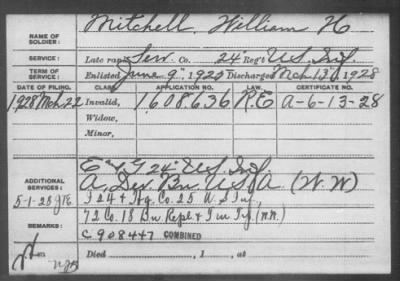 Mitchell, William H
NAME OF
SOLDIER:
SERVICE: Late rank Serv. Co. 24" Reg't U.S. Inf.
TERM OF
SERVICE: Enlisted June 9", 1920 Discharged Mch 13", 1928
DATE OF FILING. CLASS. APPLICATION NO. LAW. CERTIFICATE NO.
1928 Mch 22 Invalid, 1608636 R.E A-6-13-28
Widow,
Minor,
E & G 24" U.S. Inf.
ADDITIONAL
SERVICES: A. Dev. Bn. U.S.A. (W.W)
5-1-28 F 24 & Hq. Co. 25 U.S. Inf,
72 Co. 18 Bn. Repl. &
REMARKS:
C 908447 COMBINED
Died , 1 , at